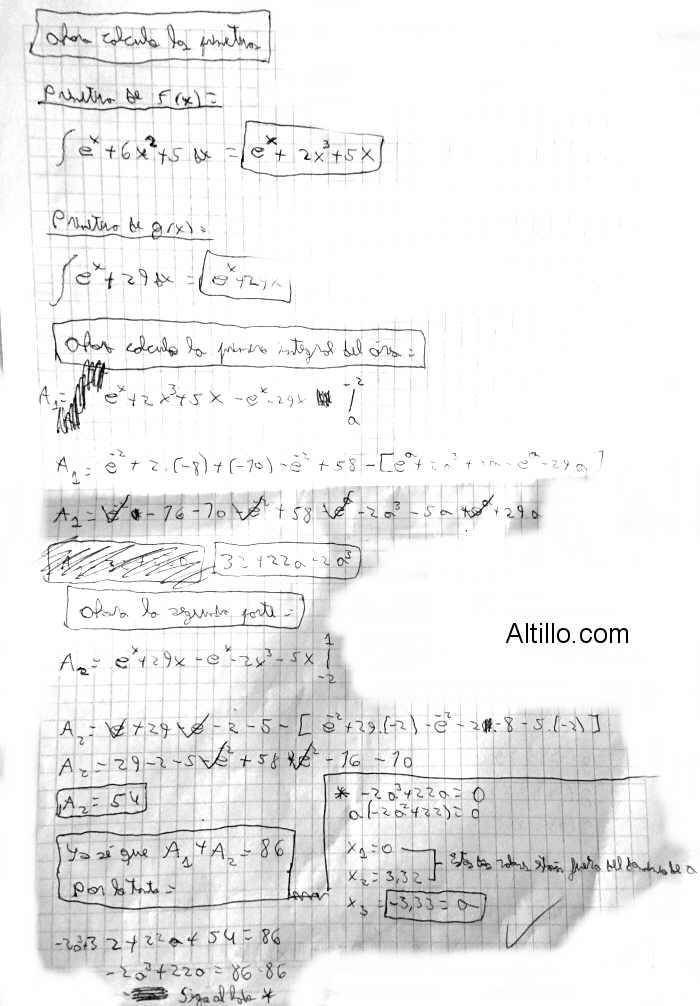 Ahora calculo las primitivas
Primitiva de f(x)=
∫ e^x + 6x^2 + 5 dx = e^x + 2x^3 + 5x
Primitiva de g(x)=
∫ e^x + 29 dx = e^x + 29x
Ahora calculo la primera integral del área=
A₁= e^x + 2x^3 + 5x - e^x - 29x |_a^-2
A₁= e^-2 + 2.(-8) + (-10) - e^-2 + 58 - [e^a + 2a^3 + 5a - e^a - 29a]
A₁= e^-2 - 16 - 10 - e^-2 + 58 - e^a - 2a^3 - 5a + e^a + 29a
32+22a-2a^3
Ahora la segunda parte=
A₂= e^x + 29x - e^x - 2x^3 - 5x |_-2^1
A₂= e + 29 - e - 2 - 5 - [e^-2 + 29.(-2) - e^-2 - 2.-8 - 5.(-2)]
A₂= 29 - 2 - 5 - e^-2 + 58 + e^-2 - 16 - 10
A₂= 54
Ya sé que A₁ + A₂ = 86
Por lo tanto=
-2a^3+32+22a+54=86
-2a^3+22a=86-86
Sigue al lado *
* -2a^3+22a=0
a(-2a^2+22)=0
x₁=0
x₂=3,32
Estas dos están fuera del de a
x₃=-3,33=a
Altillo.com